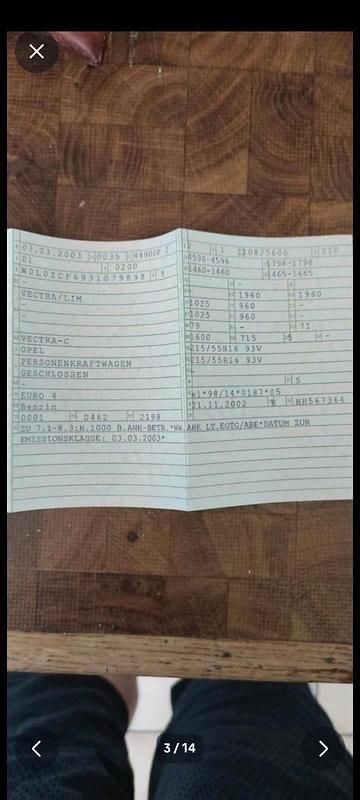 03.03.2003 0035 44900F 2
01 0200
W0L0ZCF6931079898 9
-
VECTRA/LIM
VECTRA-C
OPEL
PERSONENKRAFTWAGEN
GESCHLOSSEN
EURO 4
Benzin
0001 0462 2198
ZU 7.1-8.3:H.1000 B.ANH-BETR.*WW.AHK LT.EGTG/ABE*DATUM ZUR
EMISSIONSKLASSE: 03.03.2003*
2 1 108/5600 210
4596-4596 1798-1798
1460-1460 1465-1465
- -
- 1960 1960
1025 960 -
1025 960 -
79 - 71
1600 715 5 -
215/55R16 93V
215/55R16 93V
-
5
e1*98/14*0187*05
21.11.2002 K HH567364
3 / 14